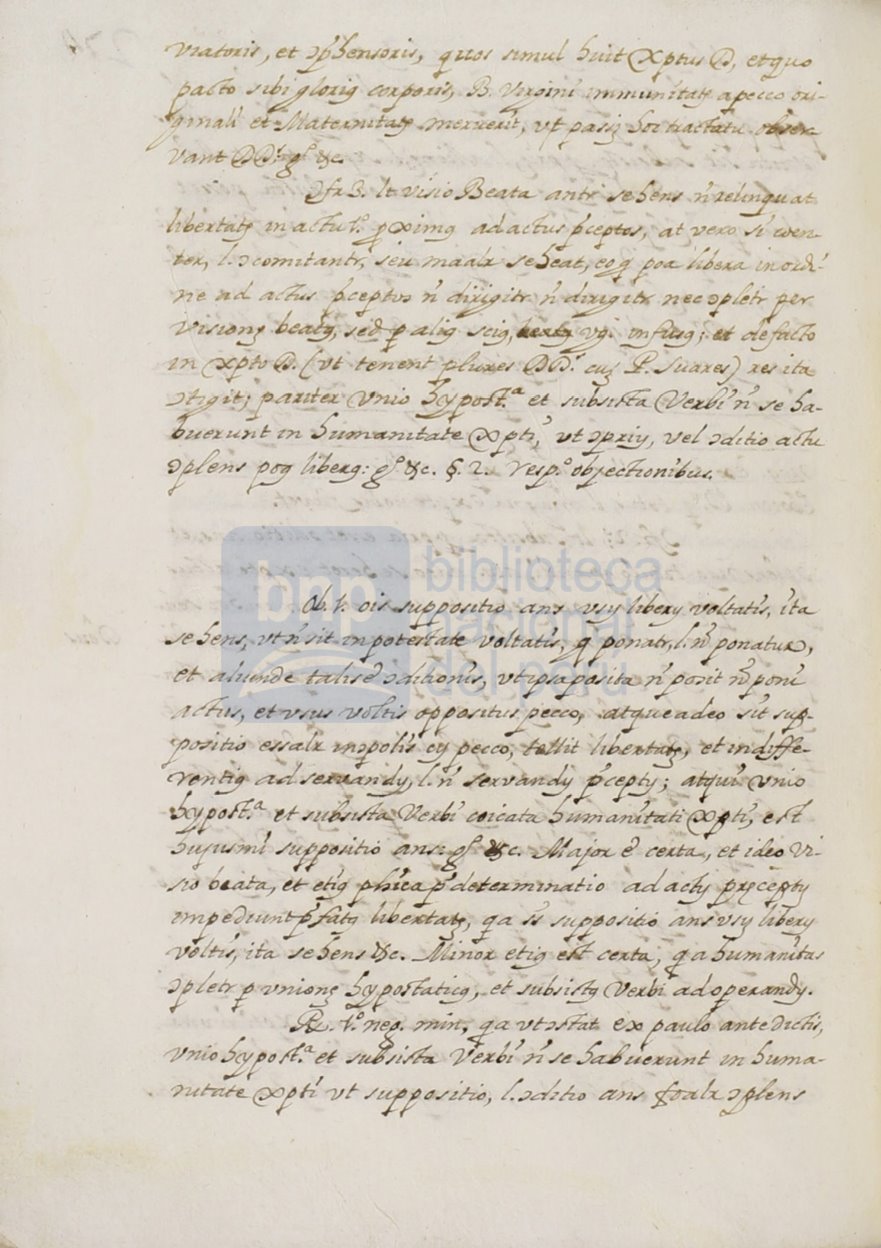 viatoris, et ɔp̄hensoris, quos simul huit Xptus D, et quo
pacto sibi glorię corporis, B. Virgini immunitatę a pecco ori-
ginali et Maternitatę meruerit, vt pasię hoc tractatu obser-
vant DDi: gº &c.
ɔfr 3. lt visio Beata antr se hens ñ relinquat
libertatę in actu 1.º pximę ad actus p̄ceptos, at vero si conen-
ter, l. ɔcomitantr, seu maalr se heat, eo q poa libera in ordi-
ne ad actus p̄ceptos ñ dirigitr ñ dirigitr nec ɔpletr per
visionę beatę, sed p alię scię, vg. infusę; et de facto
in Xpto D. (vt tenent plures DDi cuę P. Suares) res ita
ɔtigit; pariter Vnio hypost.ª et subsista Verbi ñ se ha-
buerunt in humanitate Xpti, vt ɔpriy, vel ɔditio actu
ɔplens poę liberę: gº &c. §. 2. Resp.º objectionibus.
Ob. 1. ois suppositio ans vsy libery voltatis, ita
se hens, vt ñ sit in potestate voltatis, q ponatr, l. ñ ponatur,
et aliunde talis ɔditionis, vt ipsa posita ñ posit ñ poni
actus, et vsus voltis oppositus pecco, atque adeo sit sup-
positio essalr inɔpolis cy pecco, tollit libertatę, et indiffe-
rentię ad servandy, l. ñ servandy p̄cepty; atqui vnio
hypost.ª et subsista Verbi coicata humanitati Xpti, est
hujusmi suppositio ans: gº &c. Major ē certa, et ideo vi-
sio beata, et etię phica p̄determinatio ad acty pręcepty
impediunt p̄fatę libertatę, qa st suppositio ans vsy libery
voltis, ita se hens &c. Minor etię est certa, qa humanitas
ɔpletr p vnionę hypostaticę, et subsistę Verbi ad operandy.
R. 1.º neg. min, qa vt ɔstat ex paulo ante dictis,
vnio hypost.ª et subsista Verbi ñ se habuerunt in huma-
nitate Xpti vt suppositio, l. ɔditio ans ɔplens